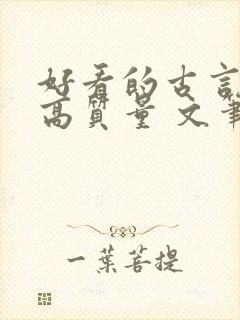 好看的古言
高质量 文笔
一葉菩提